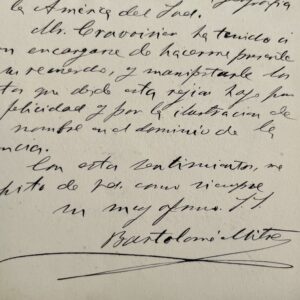 la América del Sud.
Mr. Cravoisier ha tenido
encargarse de hacerme presente
su recuerdo, y manifestarle los
tos que desde esta rejion hago por
felicidad y por la ilustracion de
nombre en el dominio de la
encia.
Con estos sentimientos, me
pito de Vd. como siempre
su muy afmo. S. S.
Bartolomé Mitre